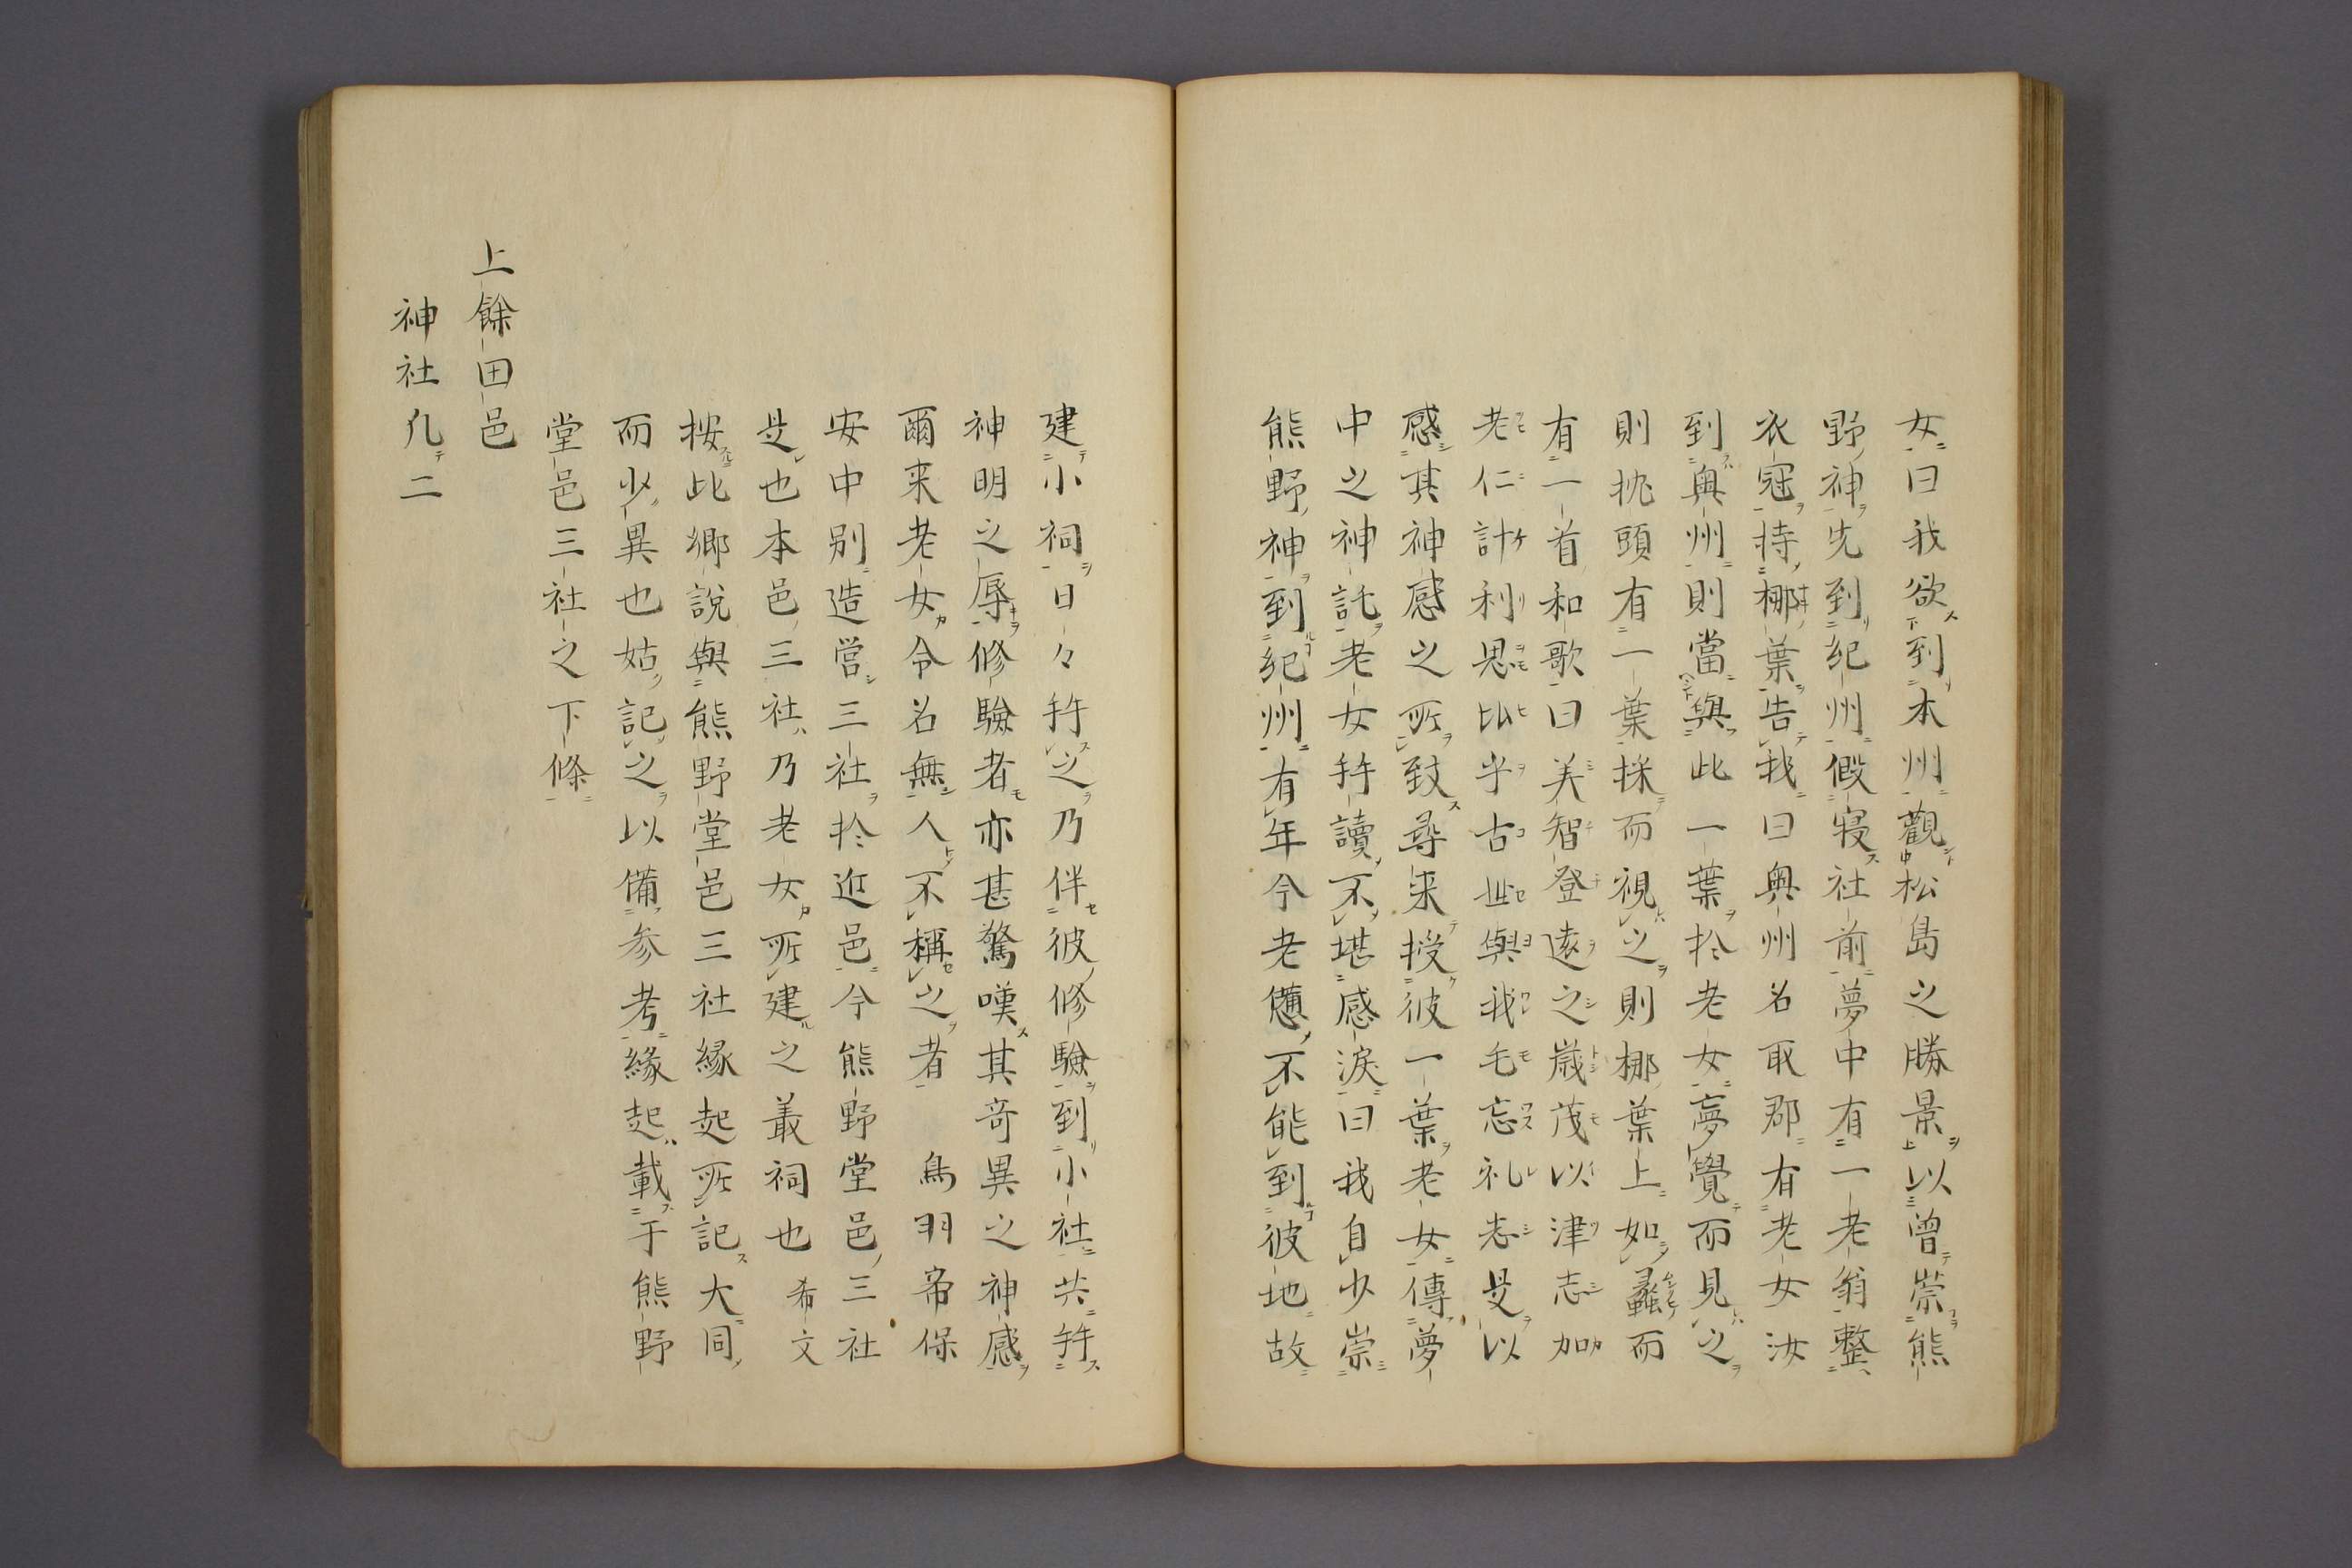 女曰我欲到本州觀松島之勝景以曾崇熊
野神先到紀州假寝社前夢中有一老翁整
衣冠持梛葉告我曰奥州名取郡有老女汝
到奥州則當與此一葉於老女夢覺而見之
則枕頭有一葉採而視之則梛葉上如蠧而
有一首和歌曰美智登遠之歳茂以津志加
老仁計利思比乎古世與我毛忘礼志是以
感其神感之所致尋来授彼一葉老女傳夢
中之神託老女拝讀不堪感涙曰我自少崇
熊野神到紀州有年今老憊不能到彼地故
建小祠日々拝之乃伴彼修験到小社共拝
神明之辱修驗者亦甚驚嘆其奇異之神感
爾来老女令名無人不稱之者 鳥羽帝保
安中別造営三社於近邑今熊野堂邑三社
是也本邑三社乃老女所建之叢祠也 希文
按此郷説與熊野堂邑三社縁起所記大同
而少異也姑記之以備参考緣起載于熊野
堂邑三社之下條
上餘田邑
神社凡二